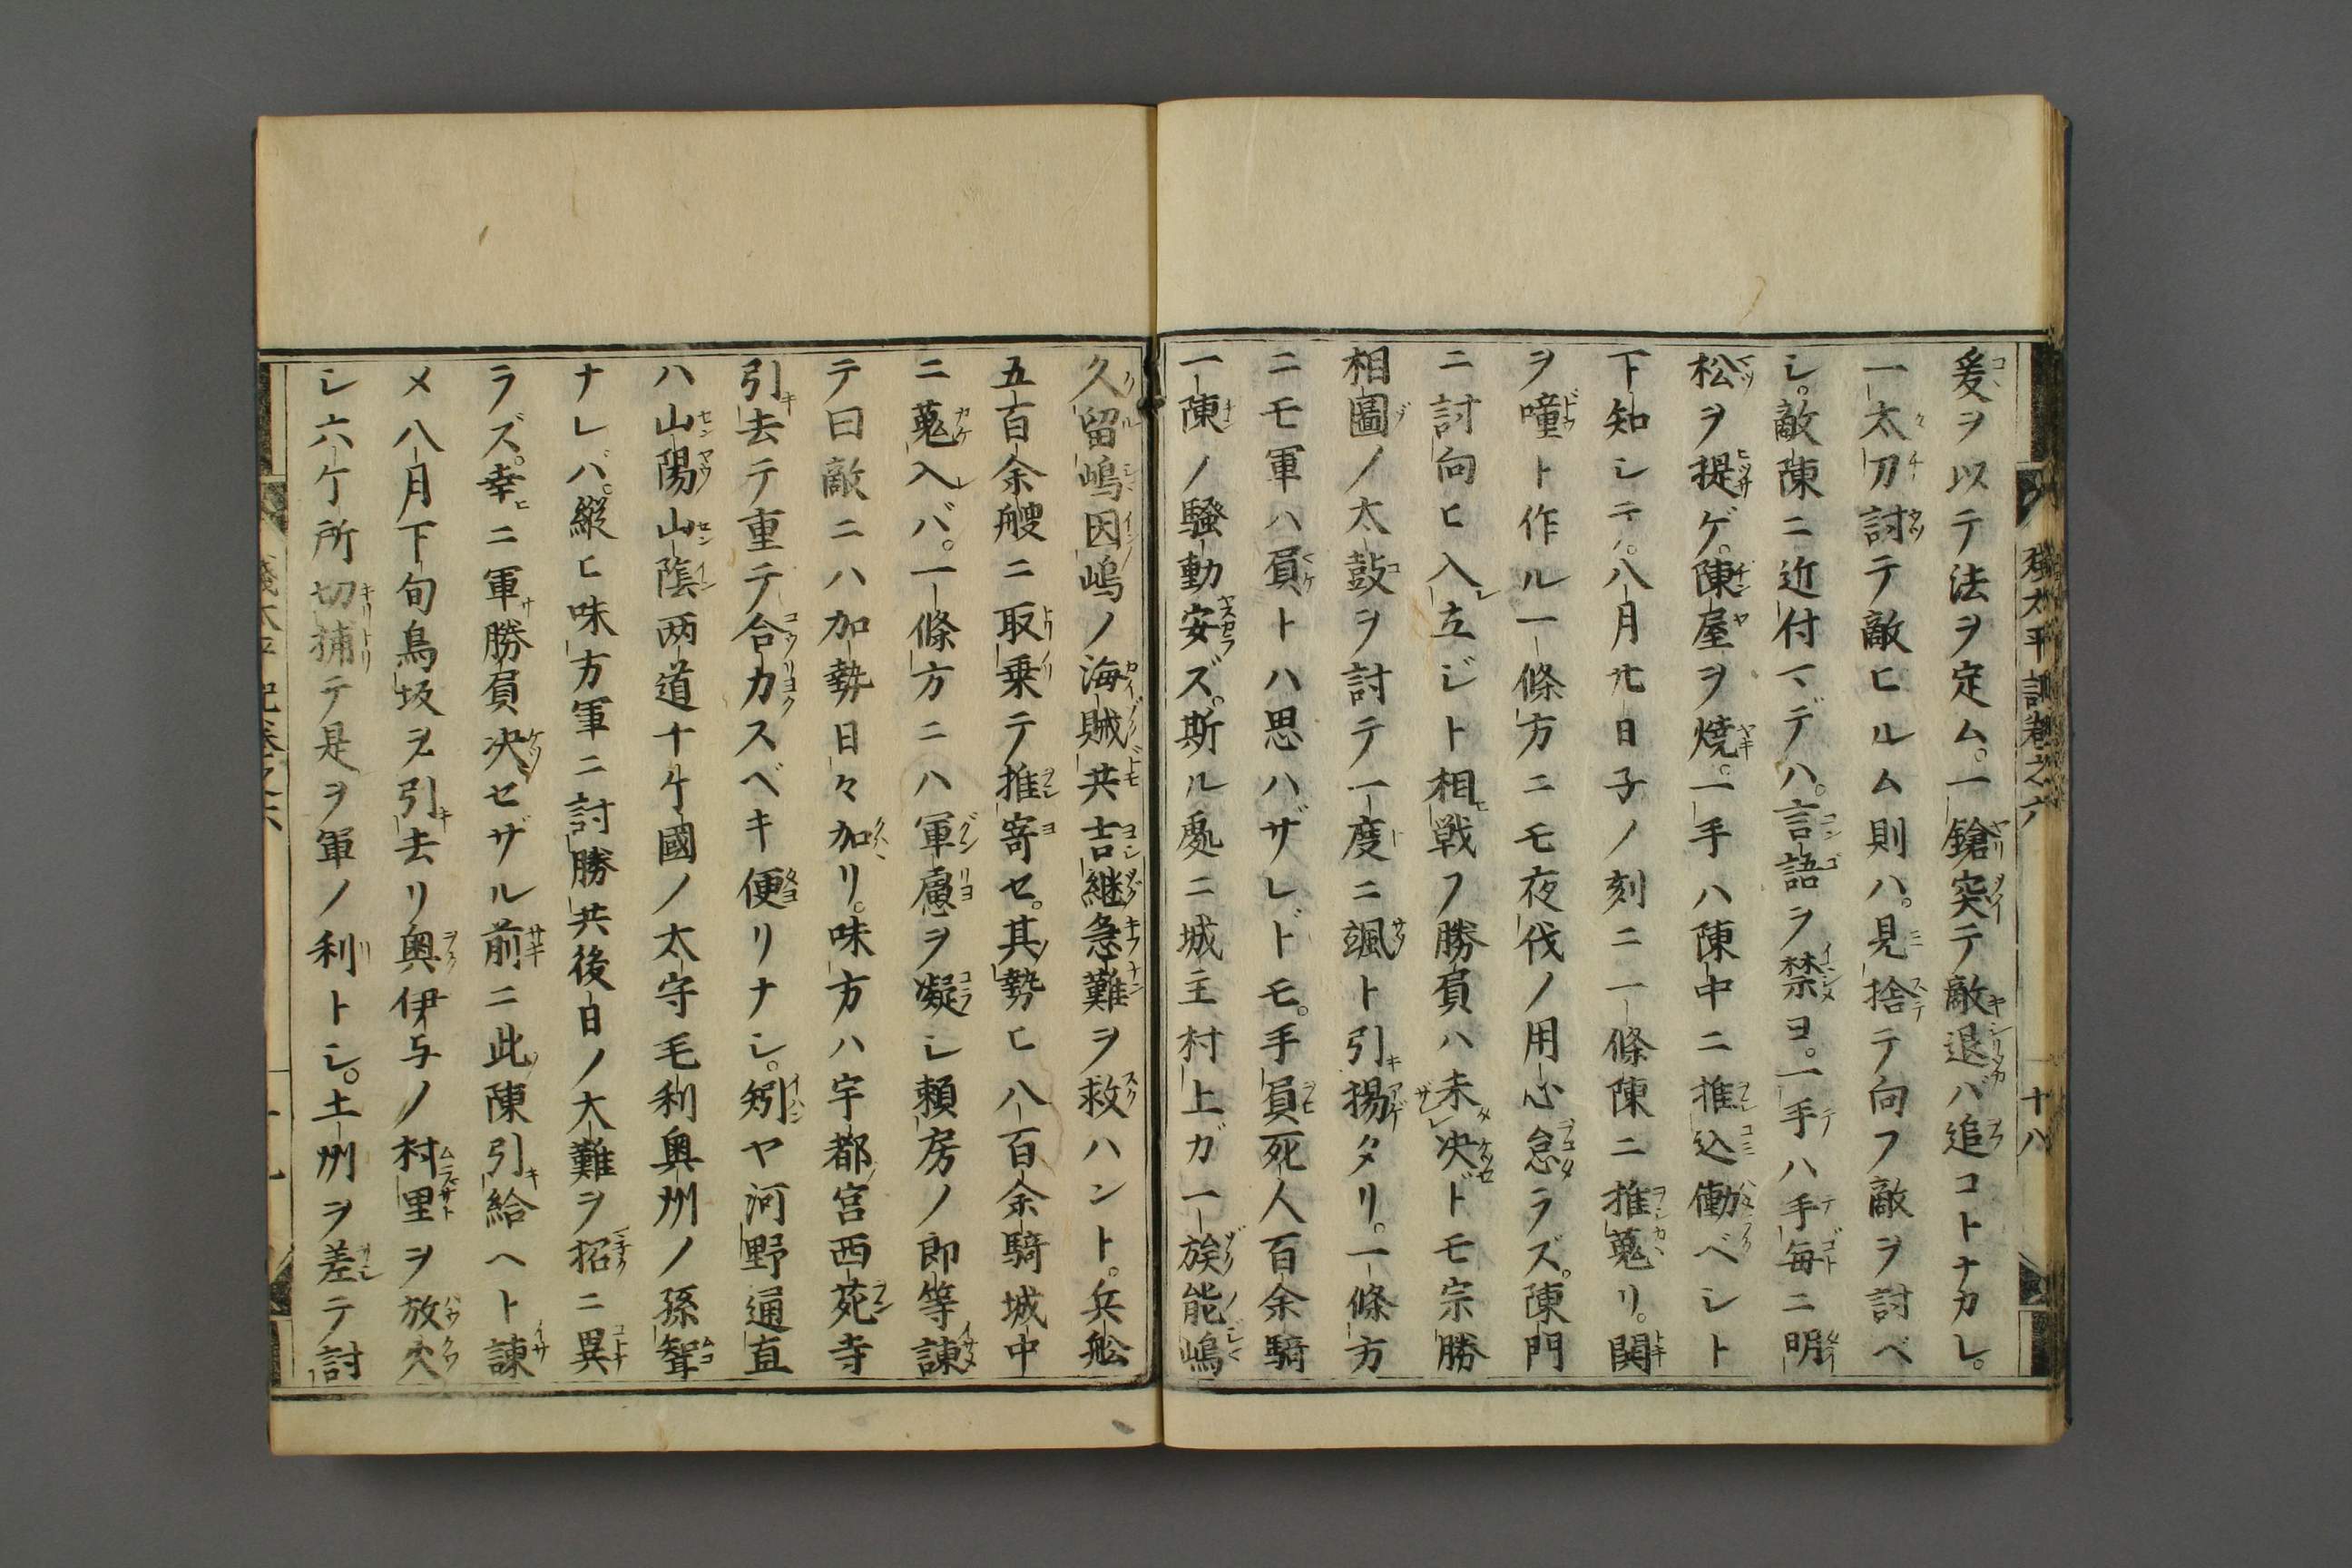 爰ヲ以テ法ヲ定ム。一鎗突テ敵退バ追コトナカレ。
一太刀討テ敵ヒルム則ハ。見捨テ向フ敵ヲ討ベ
シ。敵陳ニ近付マデハ。言語ヲ禁ヨ。一手ハ手毎ニ明
松ヲ提ゲ。陳屋ヲ焼。一手ハ陳中ニ推込働ベシト
下知シテ。八月廿日子ノ刻ニ一條陳ニ推蒐リ。鬨
ヲ噇ト作ル一條方ニモ夜伐ノ用心怠ラズ。陳門
ニ討向ヒ入立ジト相戦フ勝負ハ未决ドモ宗勝
相圖ノ太鼓ヲ討テ一度ニ颯ト引揚タリ。一條方
ニモ軍ハ負トハ思ハザレドモ。手負死人百余騎
一陳ノ騒動安ズ。斯ル處ニ城主村上ガ一族能嶋
久留嶋因嶋ノ海賊共吉継急難ヲ救ハント。兵舩
五百余艘ニ取乗テ推寄セ。其勢ヒ八百余騎城中
ニ蒐入バ。一條方ニハ軍慮ヲ凝シ頼房ノ郎等諌
テ曰敵ニハ加勢日々加リ。味方ハ宇都宮西苑寺
引去テ重テ合力スベキ便リナシ。矧ヤ河野通直
ハ山陽山陰两道十ケ國ノ太守毛利奥州ノ孫聟
ナレバ。縦ヒ味方軍ニ討勝共後日ノ大難ヲ招ニ異
ラズ。幸ニ軍勝負决セザル前ニ此陳引給ヘト諌
メ八月下旬鳥坂ヲ引去リ奥伊与ノ村里ヲ放火
シ六ケ所切捕テ是ヲ軍ノ利トシ。土州ヲ差テ討
十八